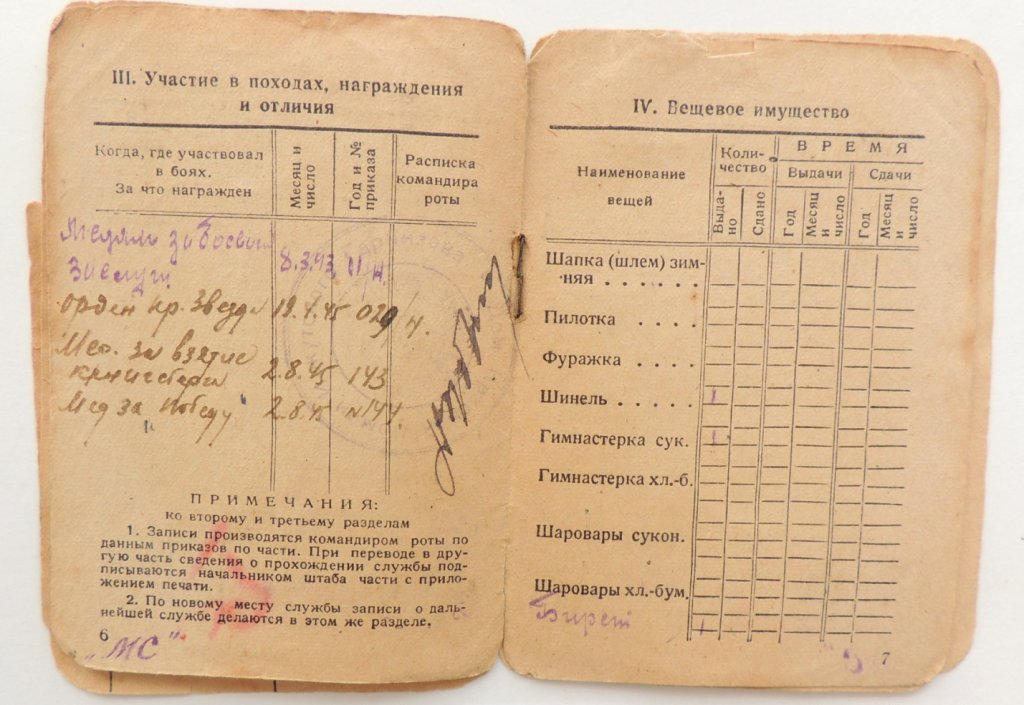 III. Участие в походах, награждения
и отличия
Когда, где участвовал
в боях.
За что награжден
Месяц и
число
Год и №
приказа
Расписка
командира
роты
Медаль за боевые 8.3.43
заслуги
орден кр. Звезда 19.4.45 029/н.
Мед. за взятие
кенигсберга 2.8.45 143
Мед за победу 2.8.45 №144.
ПРИМЕЧАНИЯ:
ко второму и третьему разделам
1. Записи производятся командиром роты по
данным приказов по части. При переводе в дру-
гую часть сведения о прохождении службы под-
писываются начальником штаба части с прило-
жением печати.
2. По новому месту службы записи о даль-
нейшей службе делаются в этом же разделе.
6
"МС"
IV. Вещевое имущество
Наименование
вещей
Коли-
чество
ВРЕМЯ
Выдачи
Сдачи
Выда-
но
Сдано
Год
Месяц
и
число
Год
Месяц
и
число
Шапка (шлем) зим-
няя . . . . . .
Пилотка . . . .
Фуражка . . . .
Шинель . . . . . 1
Гимнастерка сук. 1
Гимнастерка хл.-б.
Шаровары сукон.
Шаровары хл.-бум.
Берет 1
7